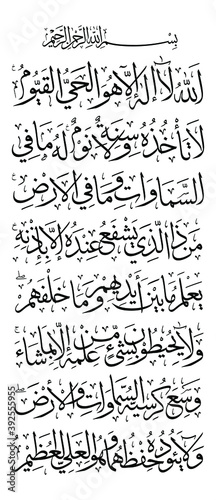 بسم الله الرحمن الرحيم
الله لا إله إلا هو الحي القيوم
لا تأخذه سنة ولا نوم له ما في
السماوات وما في الأرض
من ذا الذي يشفع عنده إلا بإذنه
يعلم ما بين أيديهم وما خلفهم
ولا يحيطون بشيء من علمه إلا بما شاء
وسع كرسيه السماوات والأرض
ولا يئوده حفظهما وهو العلي العظيم
Adobe Stock | #392555955